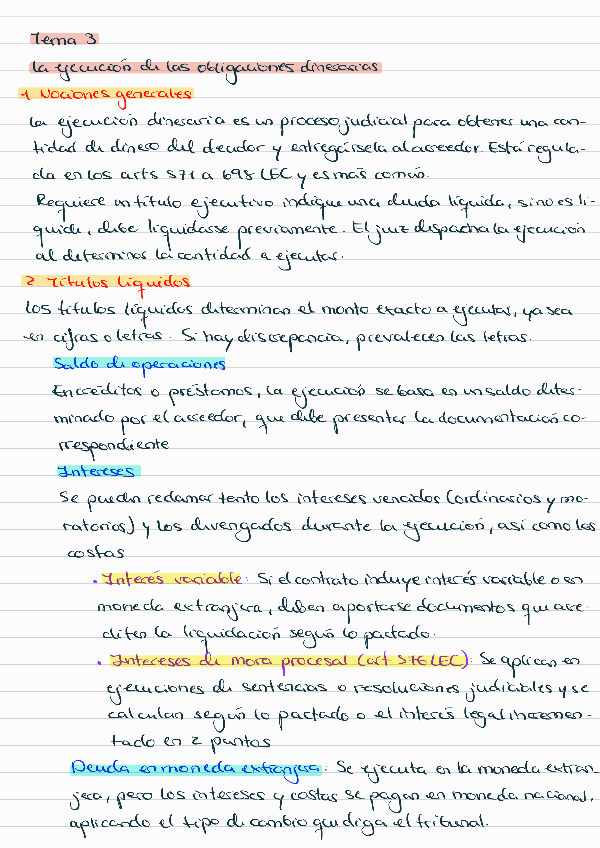 Tema 3
La ejecución de las obligaciones dinerarias
1. Nociones generales
La ejecución dineraria es un proceso judicial para obtener una can-
tidad de dinero del deudor y entregársela al acreedor. Está regula-
da en los arts 571 a 698 LEC y es más común.
Requiere un título ejecutivo indique una deuda líquida, si no es lí-
quida, debe liquidarse previamente. El juez despacha la ejecución
al determinar la cantidad a ejecutar.
2. Títulos líquidos
Los títulos líquidos determinan el monto exacto a ejecutar, ya sea
en cifras o letras. Si hay discrepancia, prevalecen las letras.
Saldo de operaciones
En créditos o préstamos, la ejecución se basa en un saldo deter-
minado por el acreedor, que debe presentar la documentación co-
rrespondiente
Intereses
Se pueden reclamar tanto los intereses vencidos (ordinarios y mo-
ratorios) y los devengados durante la ejecución, así como las
costas
• Interés variable: Si el contrato incluye interés variable o en
moneda extranjera, deben aportarse documentos que acre-
diten la liquidación según lo pactado.
• Intereses de mora procesal (art 576 LEC): Se aplican en
ejecuciones de sentencias o resoluciones judiciales y se
calculan según lo pactado o el interés legal incremen-
tado en 2 puntos
Deuda en moneda extranjera: Se ejecuta en la moneda extran-
jera, pero los intereses y costas se pagan en moneda nacional,
aplicando el tipo de cambio que diga el tribunal.